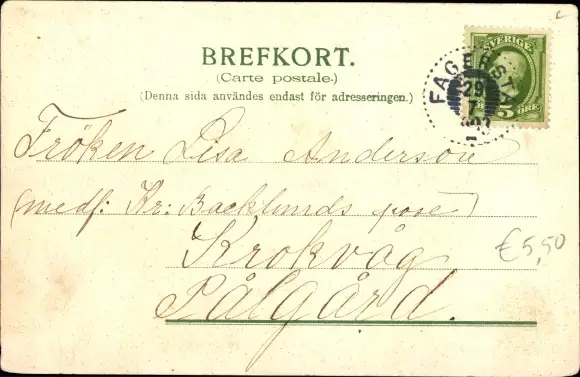 BREFKORT.
(Carte postale.)
(Denna sida användes endast för adresseringen.)
SVERIGE
5 ÖRE
FAGERSTA
29
7
Fröken Lisa Anderson
(medf: Kr: Backlunds pose)
Krokvåg
Pålgård.
€5,50